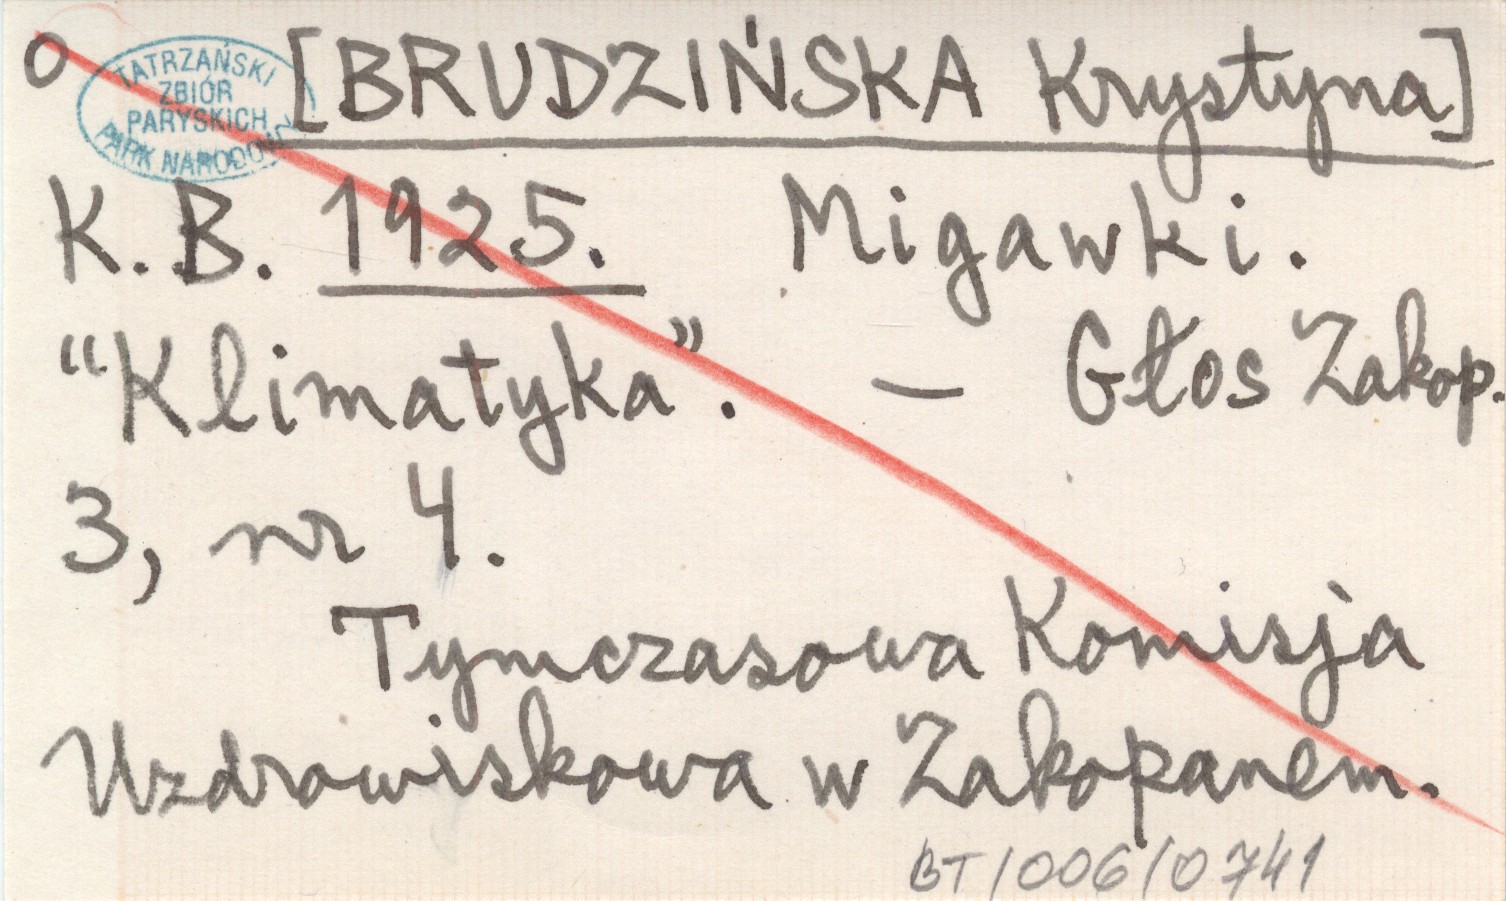 o [BRUDZIŃSKA Krystyna]
TATRZAŃSKI
ZBIÓR
PARYSKICH
PARK NARODOWY
K. B. 1925. Migawki.
“Klimatyka”. — Głos Zakop.
3, nr 4.
Tymczasowa Komisja
Uzdrowiskowa w Zakopanem.
BT/006/0741